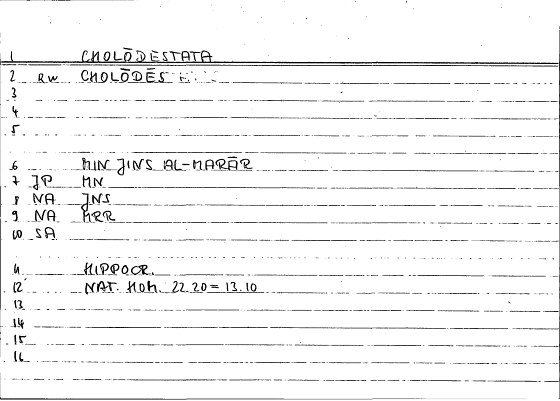 1 CHOLŌDESTATA
2 RW CHOLŌDĒS
3
4
5
6 MIN JINS AL-MARĀR
7 JP MN
8 NA JNS
9 NA MRR
10 SA
11 HIPPOCR.
12 NAT. HOM. 22.20 = 13.10
13
14
15
16